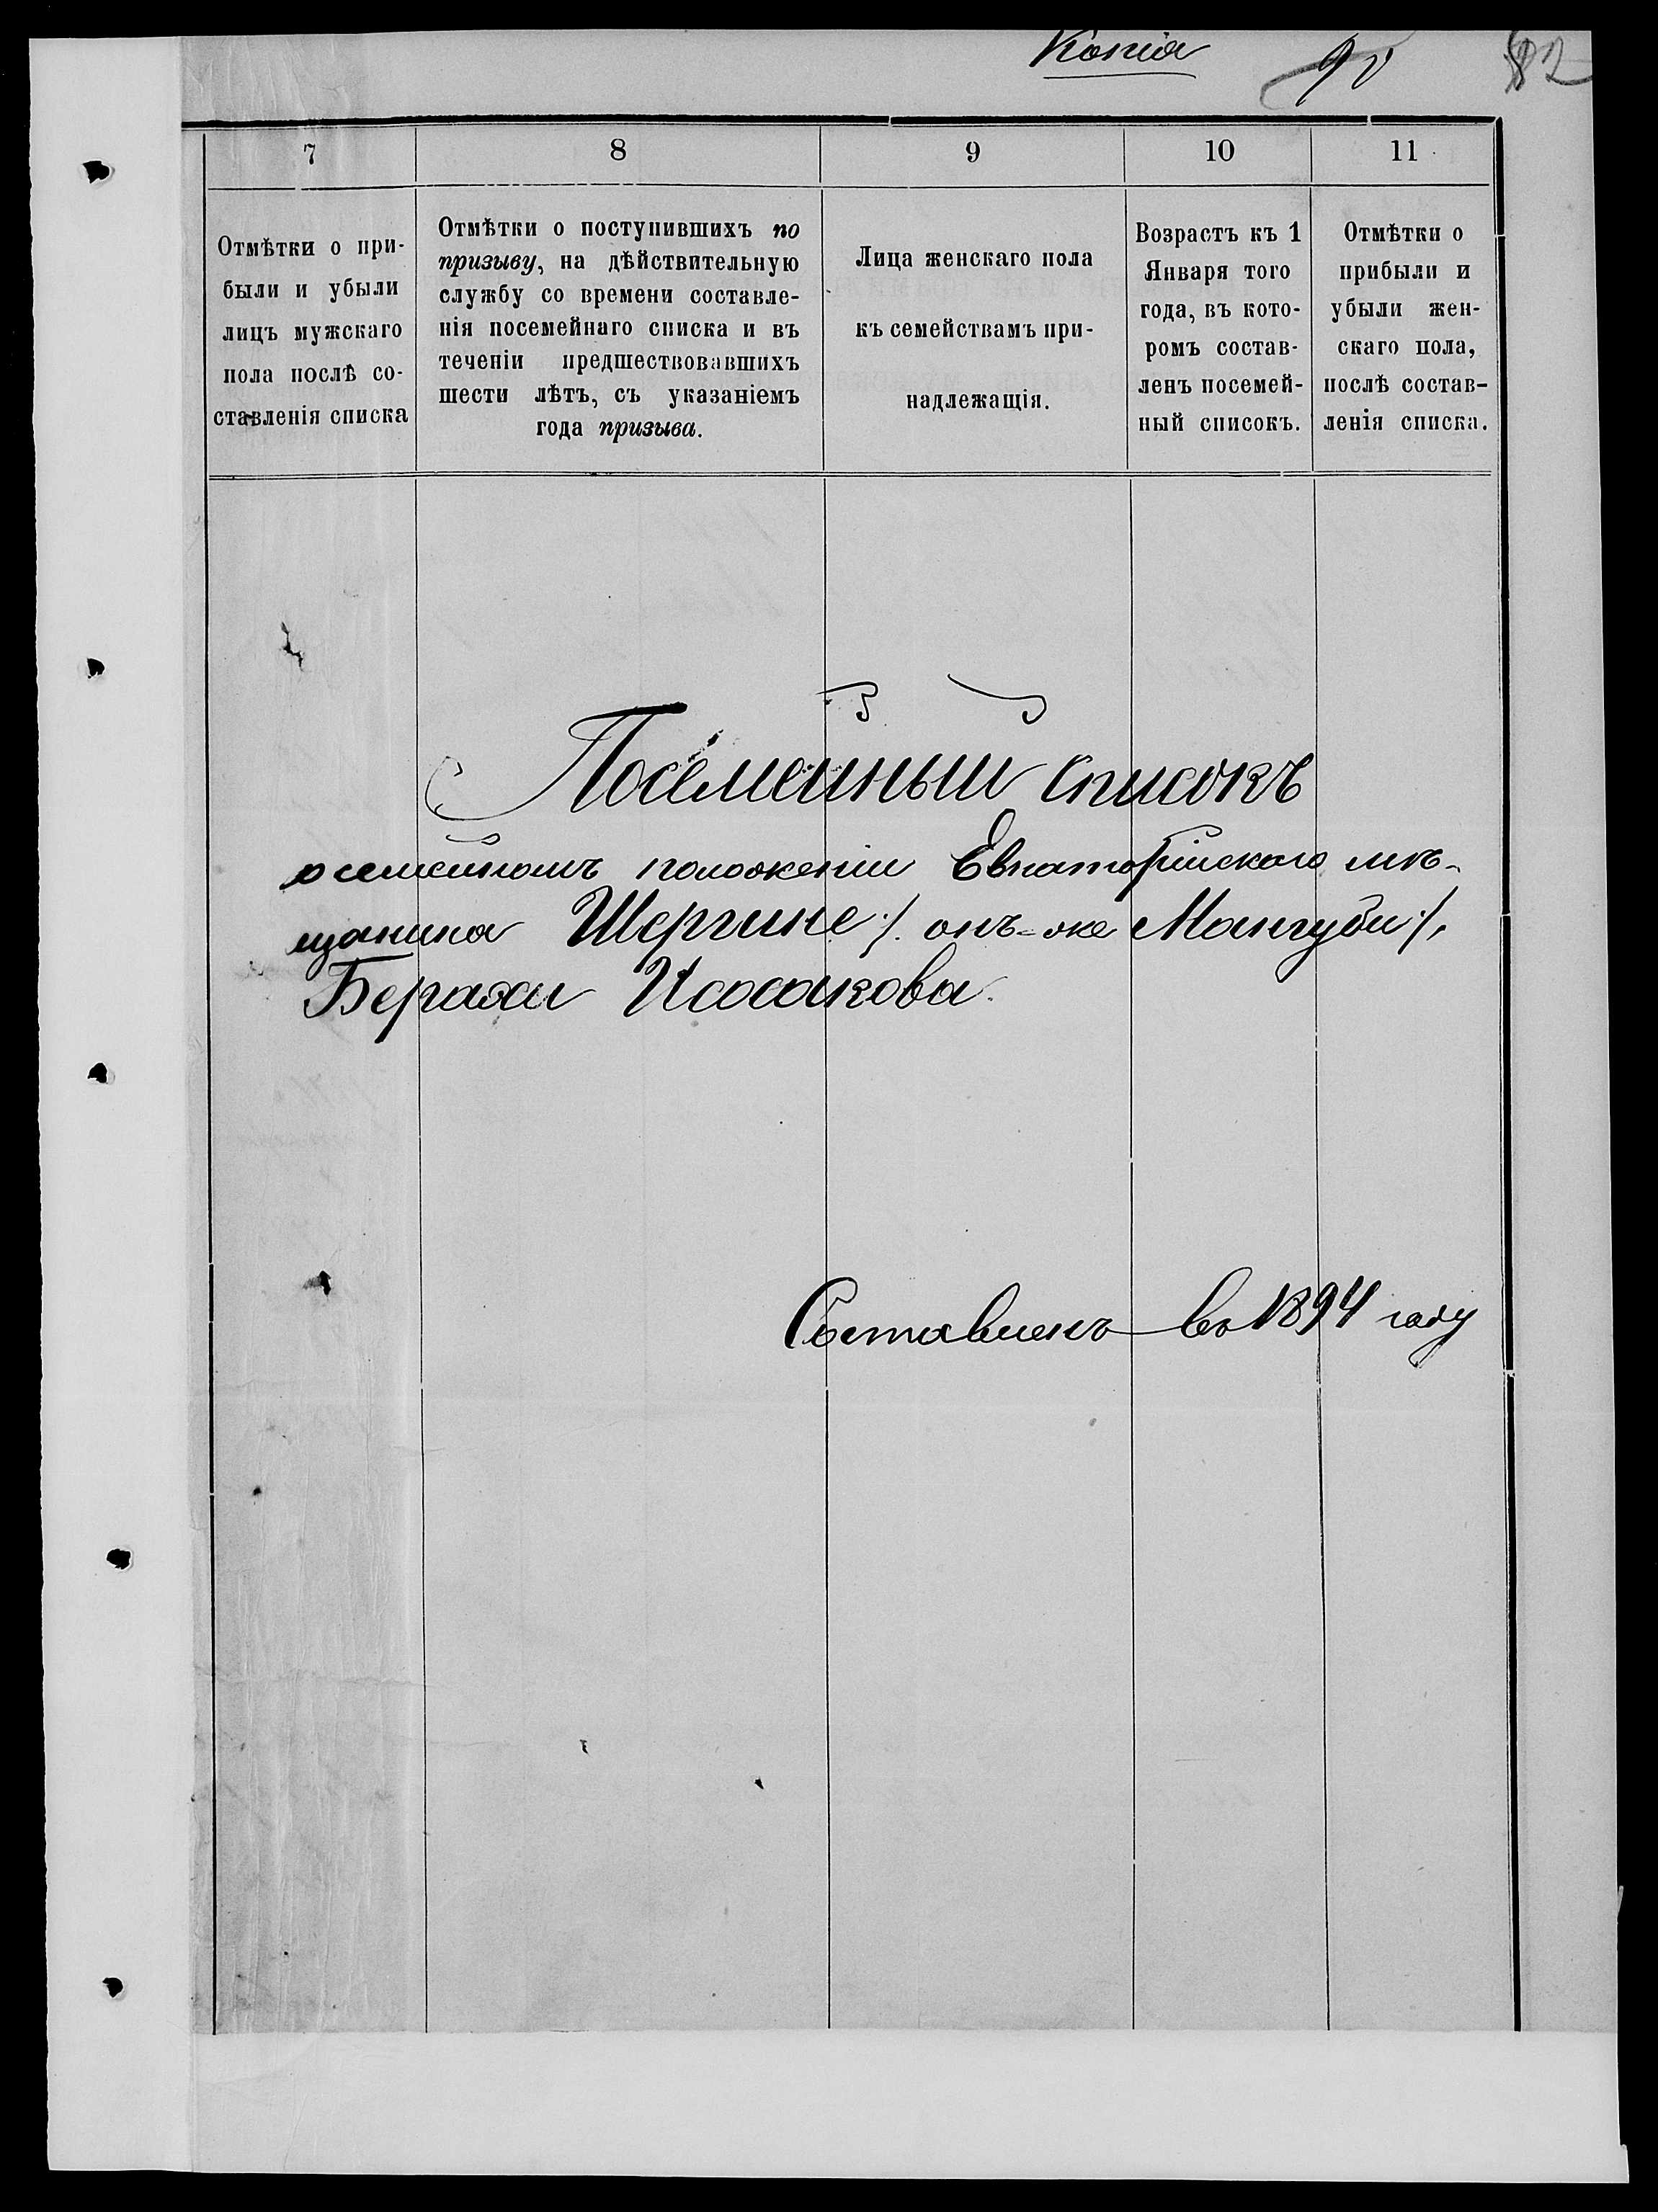 Копія
90
82
7
8
9
10
11
Отмѣтки о при-
были и убыли
лицъ мужскаго
пола послѣ со-
ставленія списка
Отмѣтки о поступившихъ по
призыву, на дѣйствительную
службу со времени составле-
нія посемейнаго списка и въ
теченіи предшествовавшихъ
шести лѣтъ, съ указаніемъ
года призыва.
Лица женскаго пола
къ семействамъ при-
надлежащія.
Возрастъ къ 1
Января того
года, въ кото-
ромъ состав-
ленъ посемей-
ный списокъ.
Отмѣтки о
прибыли и
убыли жен-
скаго пола,
послѣ состав-
ленія списка.
Посемейный списокъ
о семейномъ положеніи Евпаторійскаго мѣ-
щанина Шергине /. онъ-же Мангуби /.
Берахи Исаакова.
Составленъ въ 1894 году